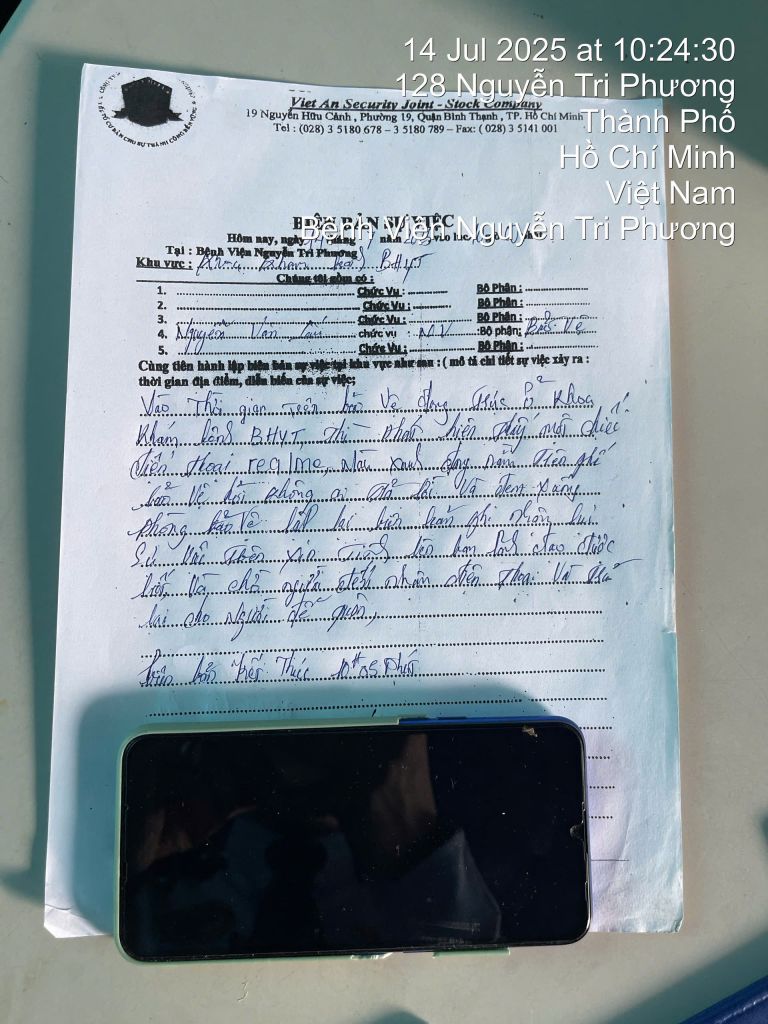 14 Jul 2025 at 10:24:30
128 Nguyễn Tri Phương
Thành Phố
Hồ Chí Minh
Việt Nam
Bệnh Viện Nguyễn Tri Phương
Viet An Security Joint - Stock Company
19 Nguyễn Hữu Cảnh , Phường 19, Quận Bình Thạnh , TP. Hồ Chí Minh
Tel : (028) 3 5180 678 – 3 5180 789 – Fax: ( 028) 3 5141 001
BIÊN BẢN SỰ VIỆC
Hôm nay, ngày 14 tháng 7 năm vào lúc
Tại : Bệnh Viện Nguyễn Tri Phương
Khu vực : Khoa khám bệnh BHYT
Chúng tôi gồm có :
1. Chức Vụ : Bộ Phận :
2. Chức Vụ : Bộ Phận :
3. Chức Vụ : Bộ Phận :
4. Nguyễn Văn chức vụ : NV :Bộ phận; Bảo Vệ
5. Chức Vụ : Bộ Phận :
Cùng tiến hành lập biên bản sự việc tại khu vực như sau : ( mô tả chi tiết sự việc xảy ra :
thời gian địa điểm, diễn biến của sự việc;
Vào Thời gian trên bảo Vệ đang trực ở Khoa
Khám bệnh BHYT, thì phát hiện thấy một chiếc
điện thoại realme, màu xanh đang nằm trên ghế
bảo Vệ hỏi không ai trả lời Và đem xuống
phòng bảo Vệ lập lại biên bản ghi nhận lúi
Sự Việc Trên xin Trình lên ban lãnh đạo được
biết Và chờ người đến nhận điện thoại Và trả
lại cho Người để quên,
biên bản kết Thúc 10H 05 phút